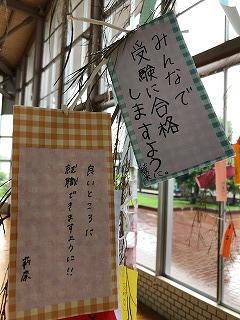 みんなで
受験に合格
しますように
良いところに
就職できますように!!